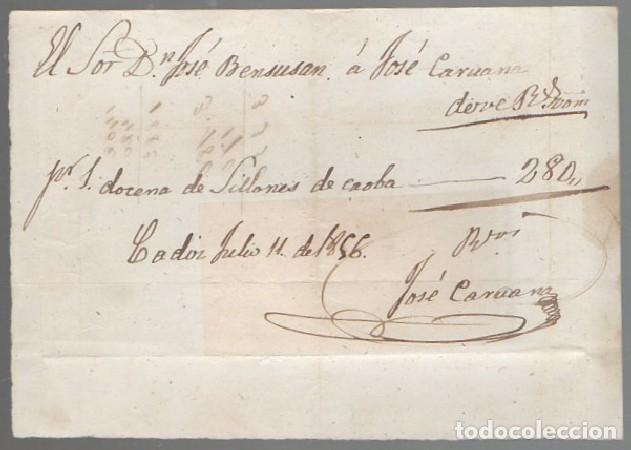 El Sor Dn José Bensusan á José Caruana
deve Rs
pr 1 docena de Sillones de caoba 280,,
Cadiz Julio 11 de 1856.
José Caruana
todocoleccion